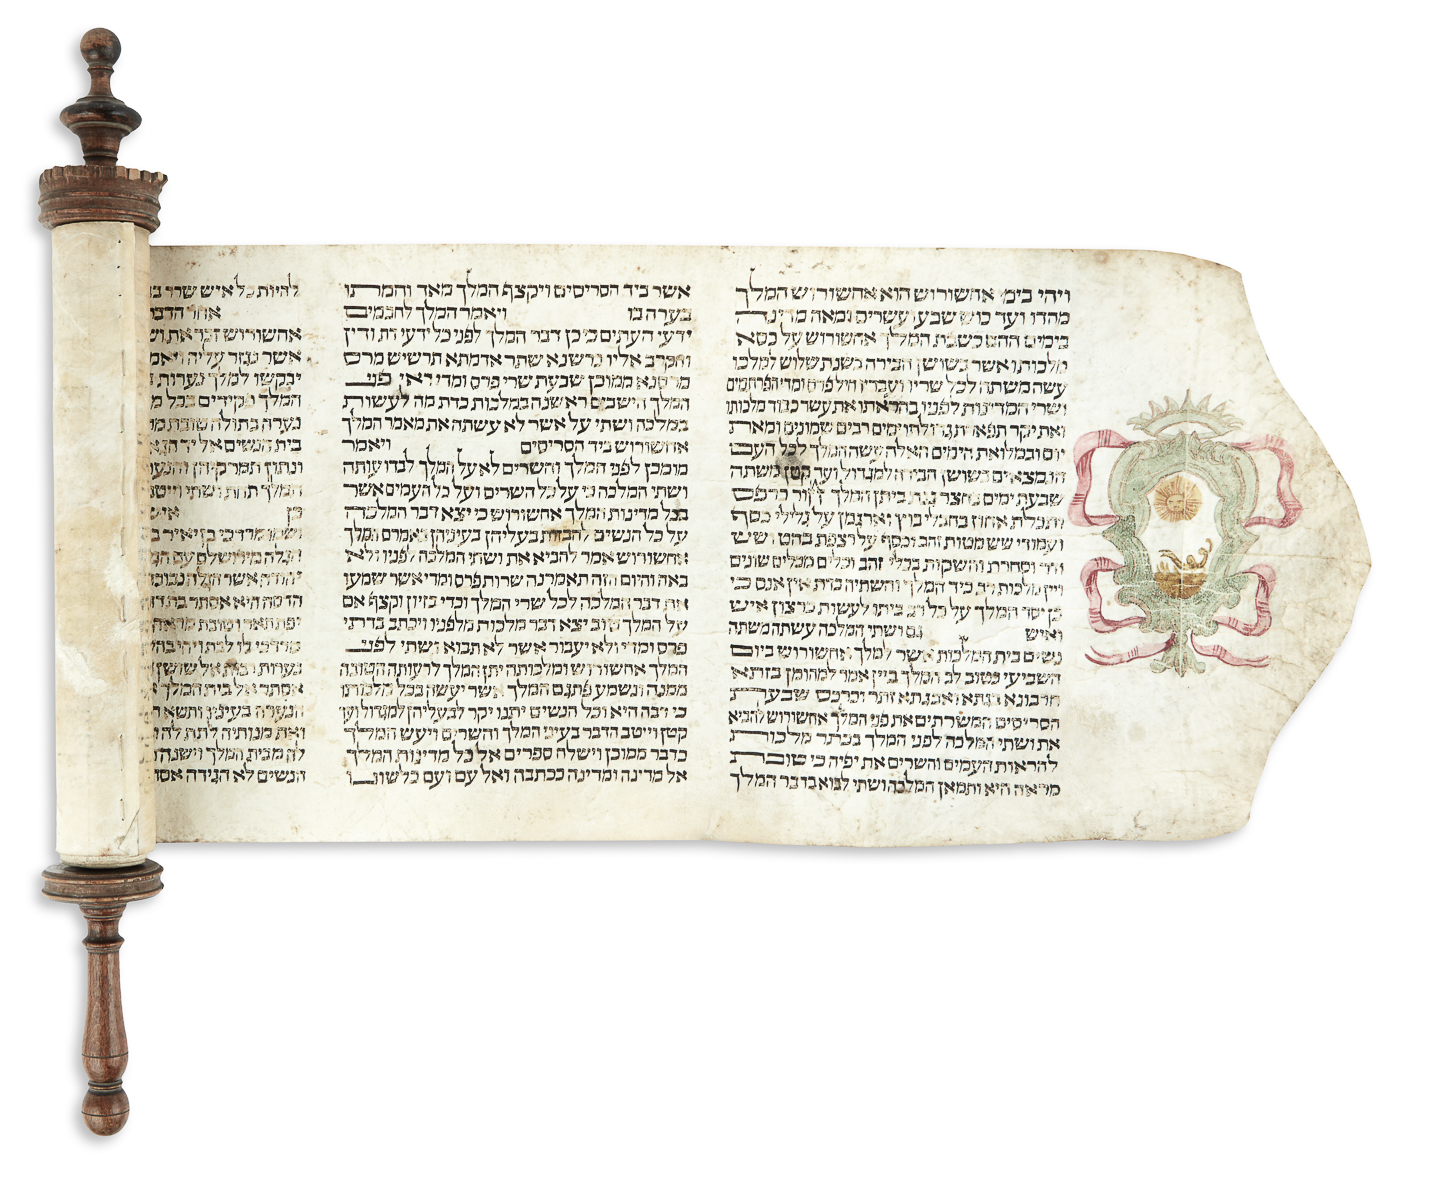 ויהי בימי אחשורוש הוא אחשורוש המלך
מהדו ועד כוש שבע ועשרים ומאה מדינה
בימים ההם כשבת המלך אחשורוש על כסא
מלכותו אשר בשושן הבירה בשנת שלוש למלכו
עשה משתה לכל שריו ועבדיו חיל פרס ומדי הפרתמים
ושרי המדינות לפניו בהראתו את עשר כבוד מלכותו
ואת יקר תפארת גדולתו ימים רבים שמונים ומאת
יום ובמלואת הימים האלה עשה המלך לכל העם
הנמצאים בשושן הבירה למגדול ועד קטן משתה
שבעת ימים בחצר גנת ביתן המלך חור כרפס
ותכלת אחוז בחבלי בוץ וארגמן על גלילי כסף
ועמודי שש מטות זהב וכסף על רצפת בהט ושש
ודר וסחרת והשקות בכלי זהב וכלים מכלים שונים
ויין מלכות רב כיד המלך והשתיה כדת אין אנס כי
כן יסד המלך על כל רב ביתו לעשות כרצון איש
ואיש גם ושתי המלכה עשתה משתה
נשים בית המלכות אשר למלך אחשורוש ביום
השביעי כטוב לב המלך ביין אמר למהומן בזתא
חרבונא בגתא ואבגתא זתר וכרכס שבעת
הסריסים המשרתים את פני המלך אחשורוש להביא
את ושתי המלכה לפני המלך בכתר מלכות
להראות העמים והשרים את יפיה כי טובת
מראה היא ותמאן המלכה ושתי לבוא בדבר המלך
אשר ביד הסריסים ויקצף המלך מאד וחמתו
בערה בו ויאמר המלך לחכמים
ידעי העתים כי כן דבר המלך לפני כל ידעי דת ודין
והקרב אליו כרשנא שתר אדמתא תרשיש מרס
מרסנא ממוכן שבעת שרי פרס ומדי ראי פני
המלך הישבים ראשנה במלכות כדת מה לעשות
במלכה ושתי על אשר לא עשתה את מאמר המלך
אחשורוש ביד הסריסים ויאמר
מומכן לפני המלך והשרים לא על המלך לבדו עותה
ושתי המלכה כי על כל השרים ועל כל העמים אשר
בכל מדינות המלך אחשורוש כי יצא דבר המלכה
על כל הנשים להבזות בעליהן בעיניהן באמרם המלך
אחשורוש אמר להביא את ושתי המלכה לפניו ולא
באה והיום הזה תאמרנה שרות פרס ומדי אשר שמעו
את דבר המלכה לכל שרי המלך וכדי בזיון וקצף אם
על המלך טוב יצא דבר מלכות מלפניו ויכתב בדתי
פרס ומדי ולא יעבור אשר לא תבוא ושתי לפני
המלך אחשורוש ומלכותה יתן המלך לרעותה הטובה
ממנה ונשמע פתגם המלך אשר יעשה בכל מלכותו
כי רבה היא וכל הנשים יתנו יקר לבעליהן למגדול ועד
קטן וייטב הדבר בעיני המלך והשרים ויעש המלך
כדבר ממוכן וישלח ספרים אל כל מדינות המלך
אל מדינה ומדינה ככתבה ואל עם ועם כלשונו
להיות כל איש שרר
אחר הדבר
אחשורוש זכר את
אשר נגזר עליה
יבקשו למלך נערות
המלך פקידים בכל
נערה בתולה טובת
בית הנשים אל יד
ונתון תמרקיהן
המלך תחת ושתי
כן איש
ושמו מרדכי בן יאיר
הגלה מירושלים עם
יהודה אשר הגלה
הדסה היא אסתר בת
יפת תאר וטובת
מרדכי לו לבת ויהי
נערות רבות אל שושן
אסתר אל בית המלך
הנערה בעיניו ותשא
ואת מנותיה לתת לה
לה מבית המלך וישנה
הנשים לא הגידה